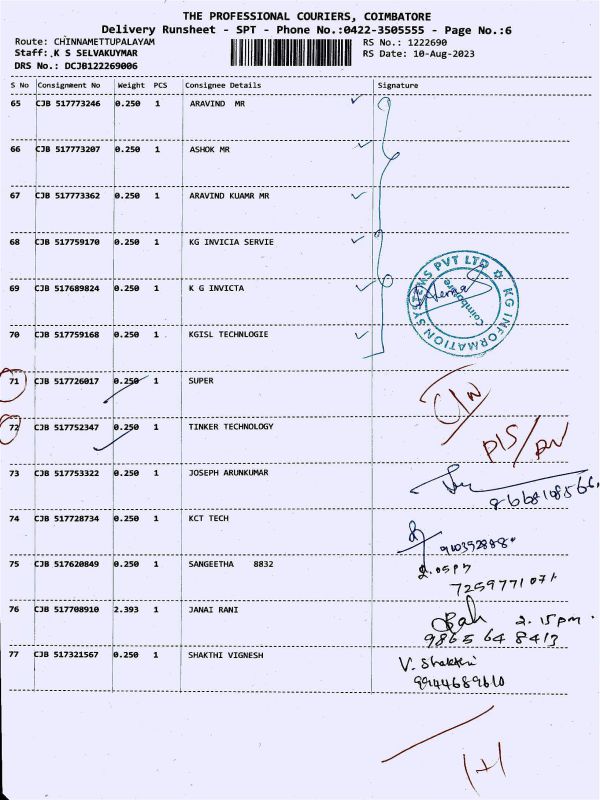 THE PROFESSIONAL COURIERS, COIMBATORE
Delivery Runsheet - SPT - Phone No.:0422-3505555 - Page No.:6
Route: CHINNAMETTUPALAYAM RS No.: 1222690
Staff: K S SELVAKUYMAR RS Date: 10-Aug-2023
DRS No.: DCJB122269006
S No Consignment No Weight PCS Consignee Details Signature
65 CJB 517773246 0.250 1 ARAVIND MR
66 CJB 517773207 0.250 1 ASHOK MR
67 CJB 517773362 0.250 1 ARAVIND KUAMR MR
68 CJB 517759170 0.250 1 KG INVICIA SERVIE
69 CJB 517689824 0.250 1 K G INVICTA
KG INFORMATION SYSTEMS PVT LTD
Coimbatore
70 CJB 517759168 0.250 1 KGISL TECHNLOGIE
71 CJB 517726017 0.250 1 SUPER
72 CJB 517752347 0.250 1 TINKER TECHNOLOGY
73 CJB 517753322 0.250 1 JOSEPH ARUNKUMAR
8668108566
74 CJB 517728734 0.250 1 KCT TECH
75 CJB 517620849 0.250 1 SANGEETHA 8832
7259771071
76 CJB 517708910 2.393 1 JANAI RANI
2.15pm
9865648413
77 CJB 517321567 0.250 1 SHAKTHI VIGNESH
V. Shakthi
9944689610